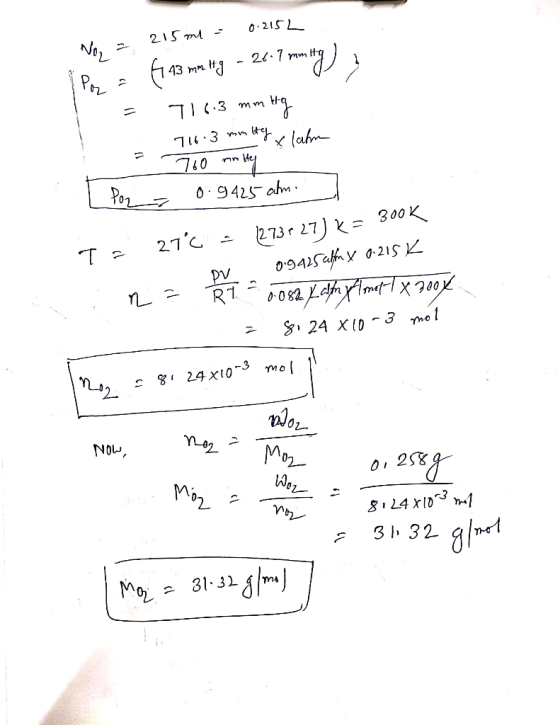 V₀₂ = 215 ml = 0.215 L
P₀₂ = (743 mm Hg - 26.7 mm Hg) ;
= 716.3 mm Hg
= 716.3 mm Hg / 760 mm Hg × 1 atm
P₀₂ = 0.9425 atm.
T = 27°C = (273+27) K = 300K
n = PV/RT = 0.9425 atm × 0.215 L / 0.082 L atm K⁻¹ mol⁻¹ × 300K
= 8.24 × 10⁻³ mol
n₀₂ = 8.24×10⁻³ mol
NOW, n₀₂ = W₀₂ / M₀₂
M₀₂ = W₀₂ / n₀₂ = 0.258g / 8.24×10⁻³ mol
= 31.32 g/mol
M₀₂ = 31.32 g/mol